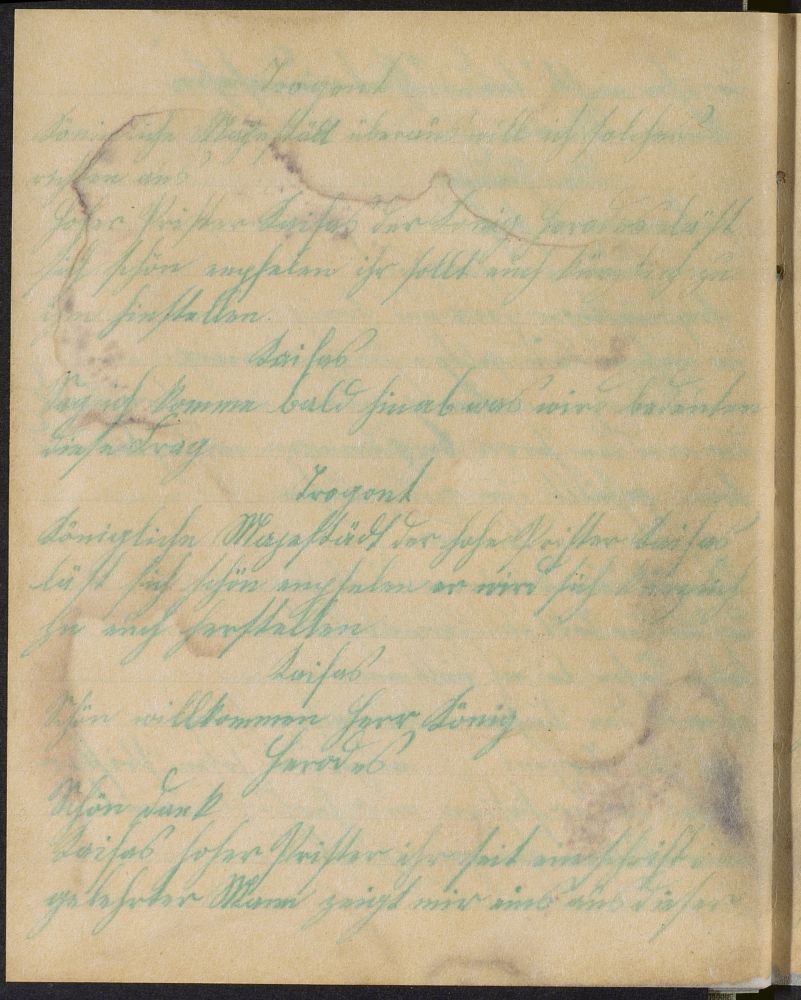 Trogont
Königliche Majestätt überaus will ich solches
richten aus
Hoher Prister Kaifas der König Herodes läst
sich schön empfelen ihr sollt euch zu
ihm hinstellen
Kaifas
Sag ich komme bald hinab was wird bedeuten
diese Frag
Trogont
Königliche Majestädt der hohe Prister Kaifas
läst sich schön empfelen er wird sich
zu euch herstellen
Kaifas
Schön willkommen Herr König
Herodes
Schön dank
Kaifas hoher Prister ihr seit ein schrift
gelehrter Mann zeigt mir eins aus dieser